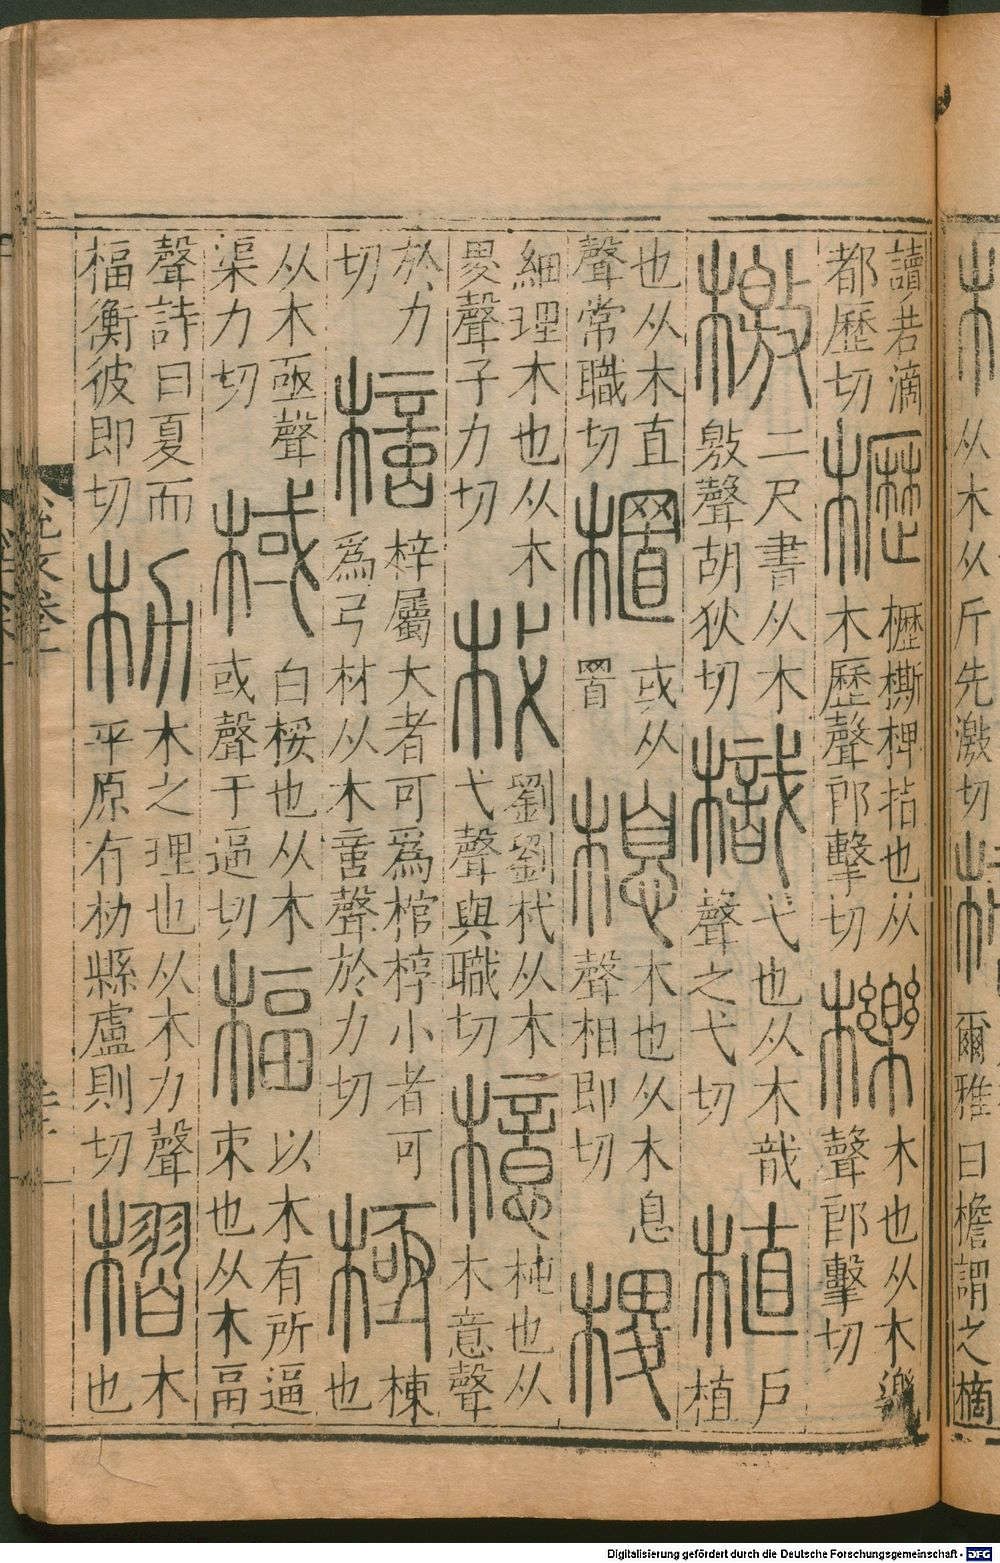 析从木从斤先激切樀爾雅曰檐謂之樀
讀若滴都歷切櫪櫪撕椑指也从木歷聲郎擊切櫟木也从木樂聲郎擊切
檄二尺書从木敫聲胡狄切樴弋也从木戠聲之弋切植戶植
也从木直聲常職切㯰或从置楒木也从木息聲相即切㮨
細理木也从木畟聲子力切杙劉劉杙从木弋聲與職切檍杶也从木意聲
於力切梓屬大者可爲棺椁小者可爲弓材从木啻聲於力切極棟也
从木亟聲渠力切棫白桵也从木或聲于逼切楅以木有所逼束也从木畐
聲詩曰夏而楅衡彼即切朸木之理也从木力聲平原有朸縣盧則切槢木也
Digitalisierung gefördert durch die Deutsche Forschungsgemeinschaft - DFG